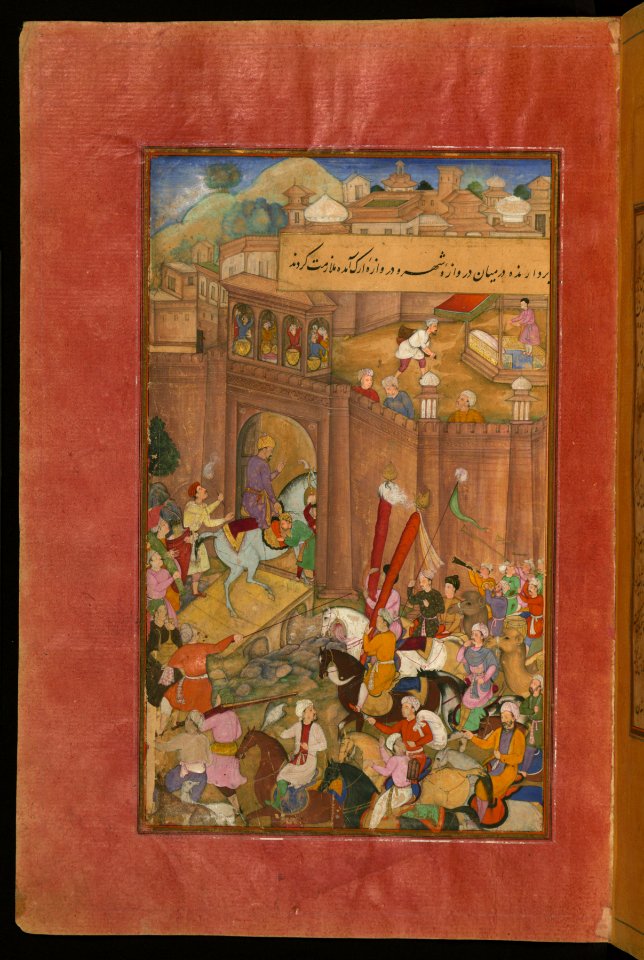 بروار مذه درمیان دروازهٔ شهر و دروازهٔ ارک آمده ملازمت کردند